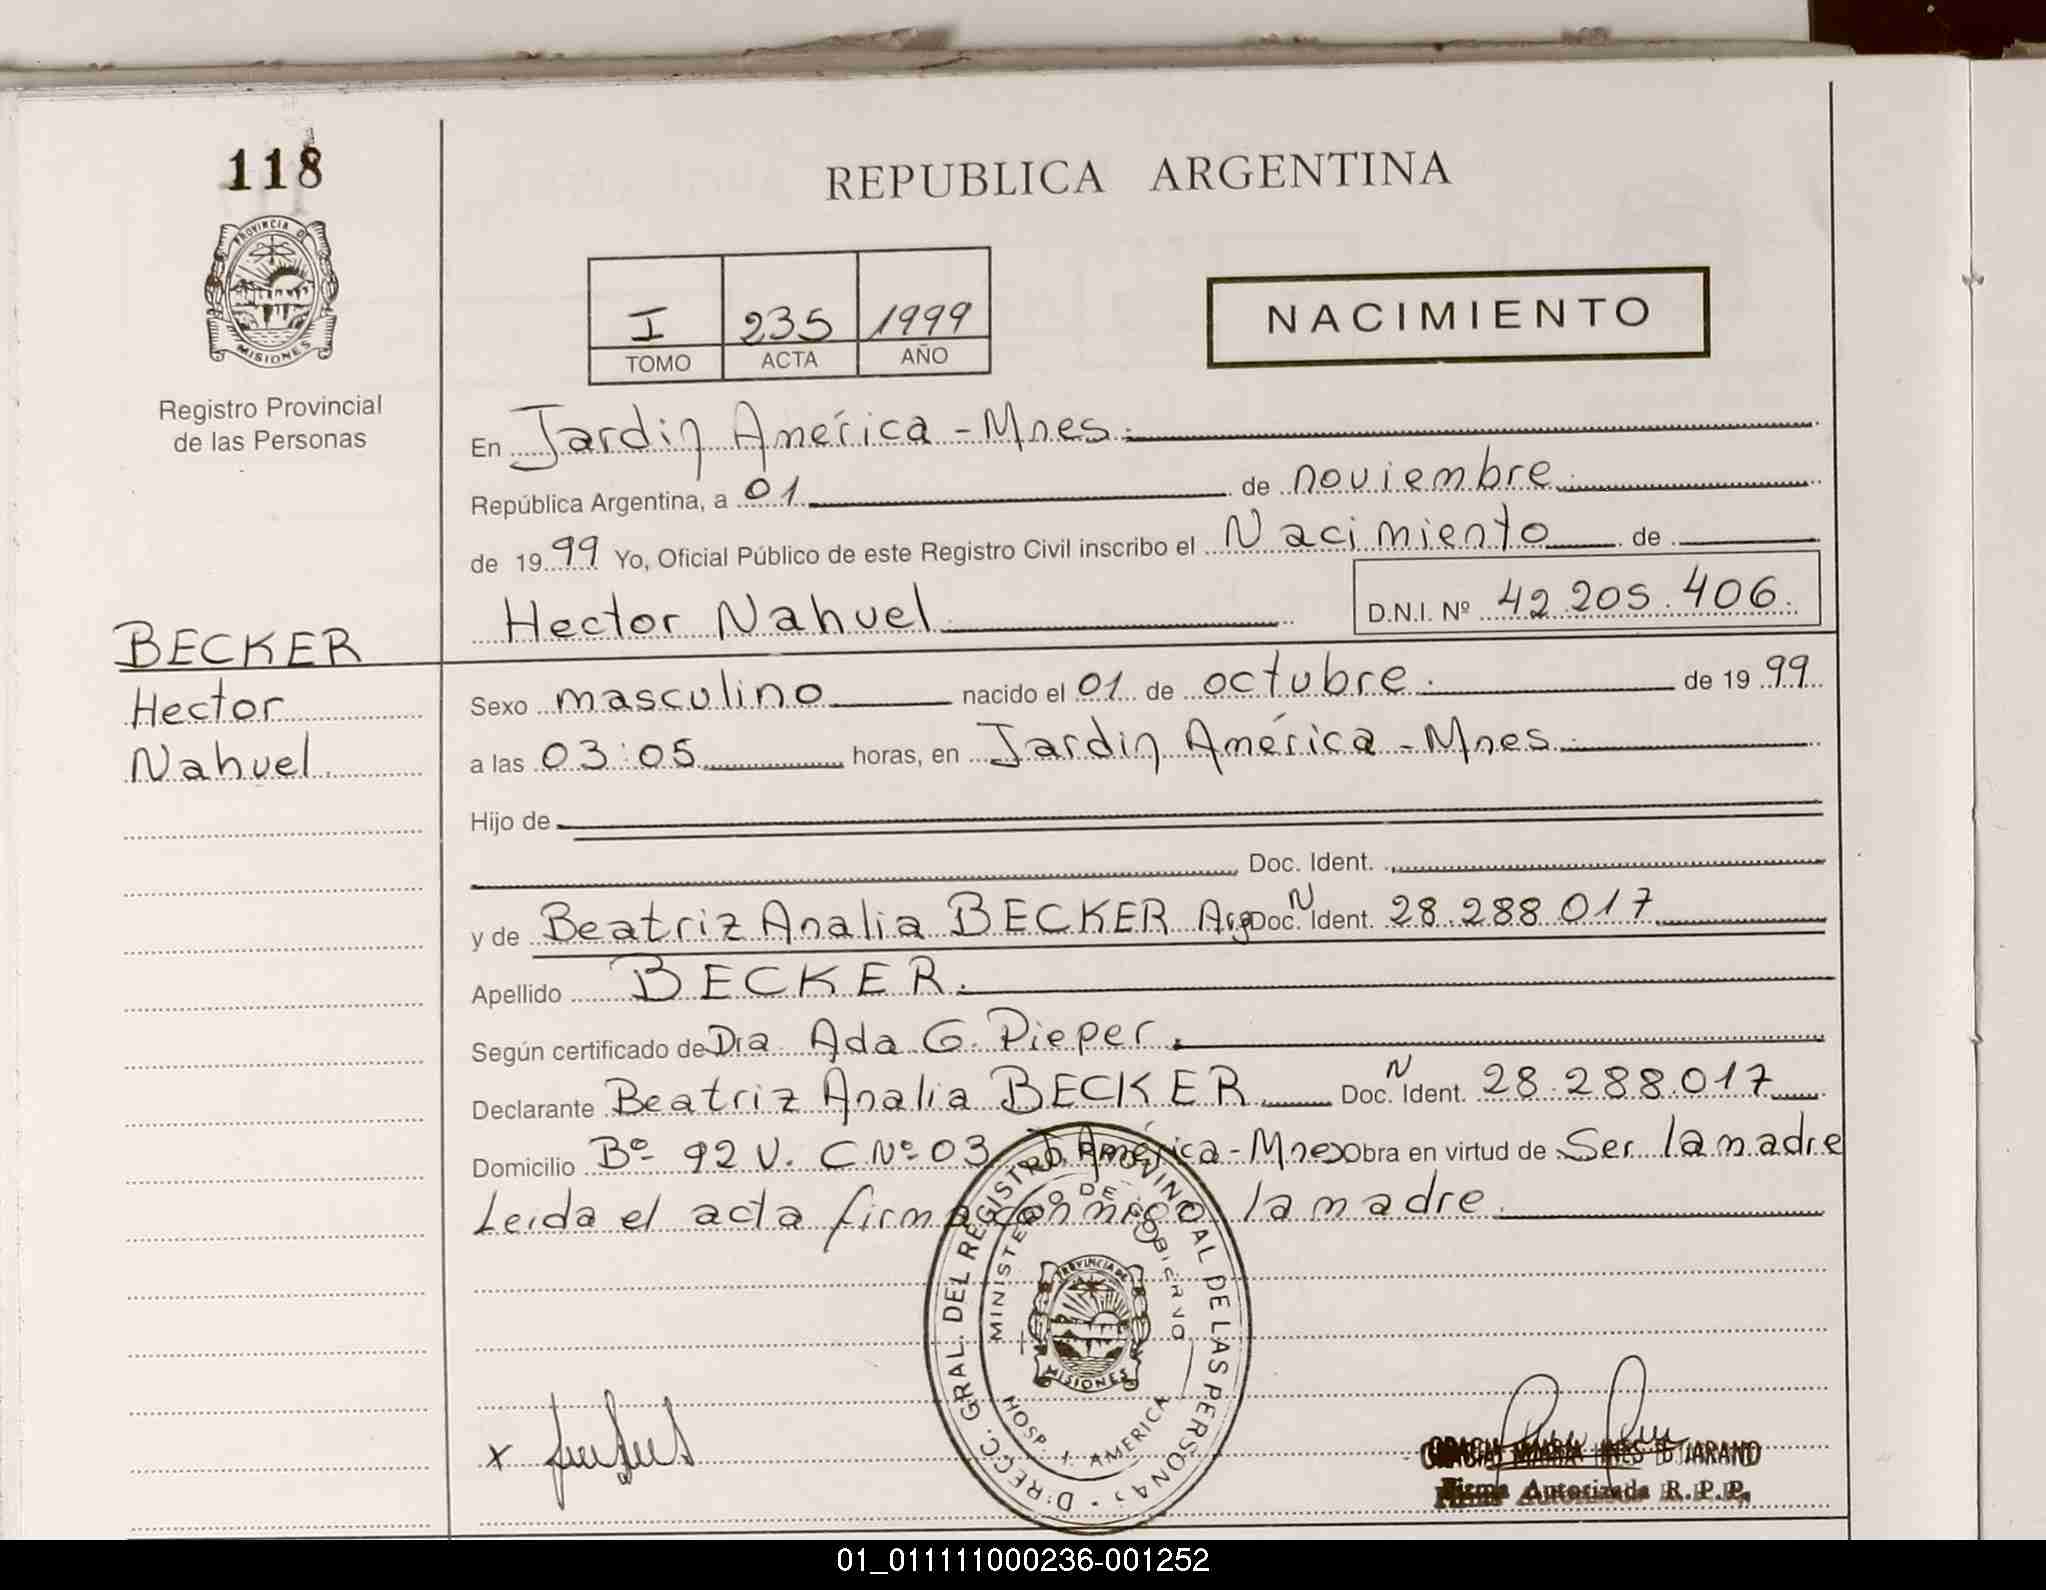 118
PROVINCIA D
MISIONES
Registro Provincial
de las Personas
REPUBLICA ARGENTINA
I 235 1999
TOMO ACTA AÑO
NACIMIENTO
En Jardin América - Mnes.
República Argentina, a 01 de noviembre.
de 1999 Yo, Oficial Público de este Registro Civil inscribo el Nacimiento de
Hector Nahuel. D.N.I. Nº 42.205.406.
BECKER
Hector
Nahuel.
Sexo masculino nacido el 01 de octubre. de 1999
a las 03:05 horas, en Jardin América - Mnes.
Hijo de
Doc. Ident.
y de Beatriz Analia BECKER Arg Doc. N Ident. 28.288.017
Apellido BECKER.
Según certificado de Dra Ada G. Pieper.
Declarante Beatriz Analia BECKER Doc. N Ident. 28.288.017
Domicilio Bº 92 V. C Nº 03 J. América - Mnes Obra en virtud de Ser la madre
Leida el acta firma con migo la madre.
DIRECC. GRAL. DEL REGISTRO PROVINCIAL DE LAS PERSONAS
MINISTERIO DE GOBIERNO
PROVINCIA DE
MISIONES
HOSP. J. AMERICA
x
MARIA INES BEJARANO
Firma Autorizada R.P.P.
01_011111000236-001252